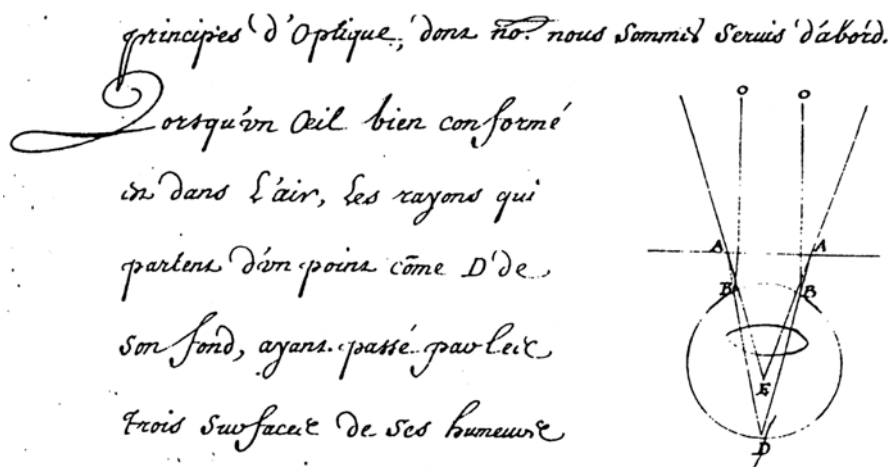 principes d'Optique, dont no. nous sommes servis d'abord.
Lorsqu'vn Œil bien conformé
est dans l'air, les rayons qui
partent d'vn point cõme D de
son fond, ayant passé par les
trois surfaces de ses humeurs
O O
A A
B B
E
D